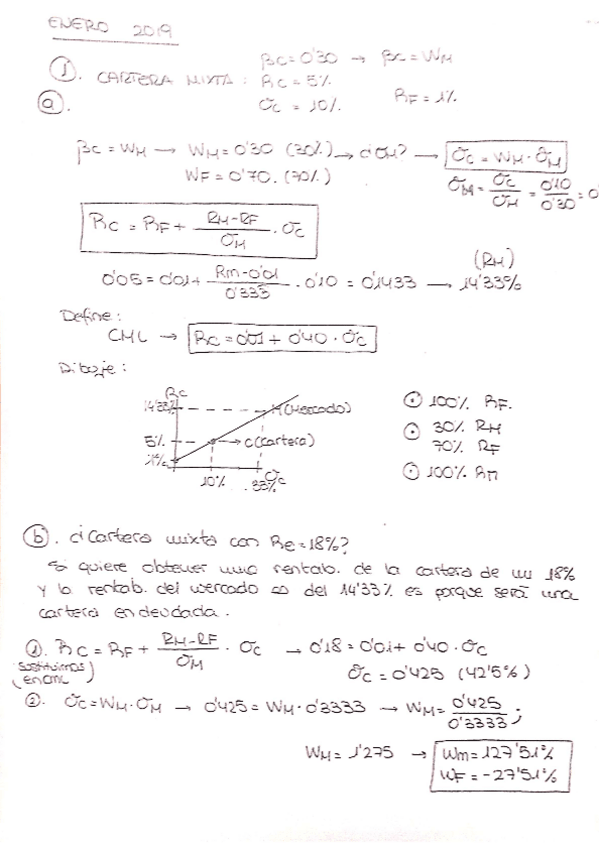 ENERO 2019
①. CARTERA MIXTA: βc = 0'30 → βc = WM
Rc = 5%
σc = 10% RF = 1%
ⓐ.
βc = WM → WM = 0'30 (30%) → ¿σM? → σc = WM · σM
WF = 0'70. (70%)
σM = σc/σM = 0'10/0'30 = 0
Rc = RF + RM-RF/σM · σc
(RM)
0'05 = 0'01 + Rm-0'01/0'333 · 0'10 = 0'1433 → 14'33%
Define:
CML → Rc = 0'01 + 0'40 · σc
Dibuje:
Rc
14'33% M (Mercado)
5% C (Cartera)
1%
10% 33% σc
⊙ 100% RF.
⊙ 30% RM
70% RF
⊙ 100% Rm
ⓑ. ¿Cartera mixta con Re = 18%?
Si quiere obtener una rentab. de la cartera de un 18%
y la rentab. del mercado es del 14'33% es porque será una
cartera endeudada.
①. Rc = RF + RM-RF/σM · σc → 0'18 = 0'01 + 0'40 · σc
(sustituimos en CML) σc = 0'425 (42'5%)
②. σc = WM · σM → 0'425 = WM · 0'3333 → WM = 0'425/0'3333;
WM = 1'275 → Wm = 127'51%
WF = -27'51%